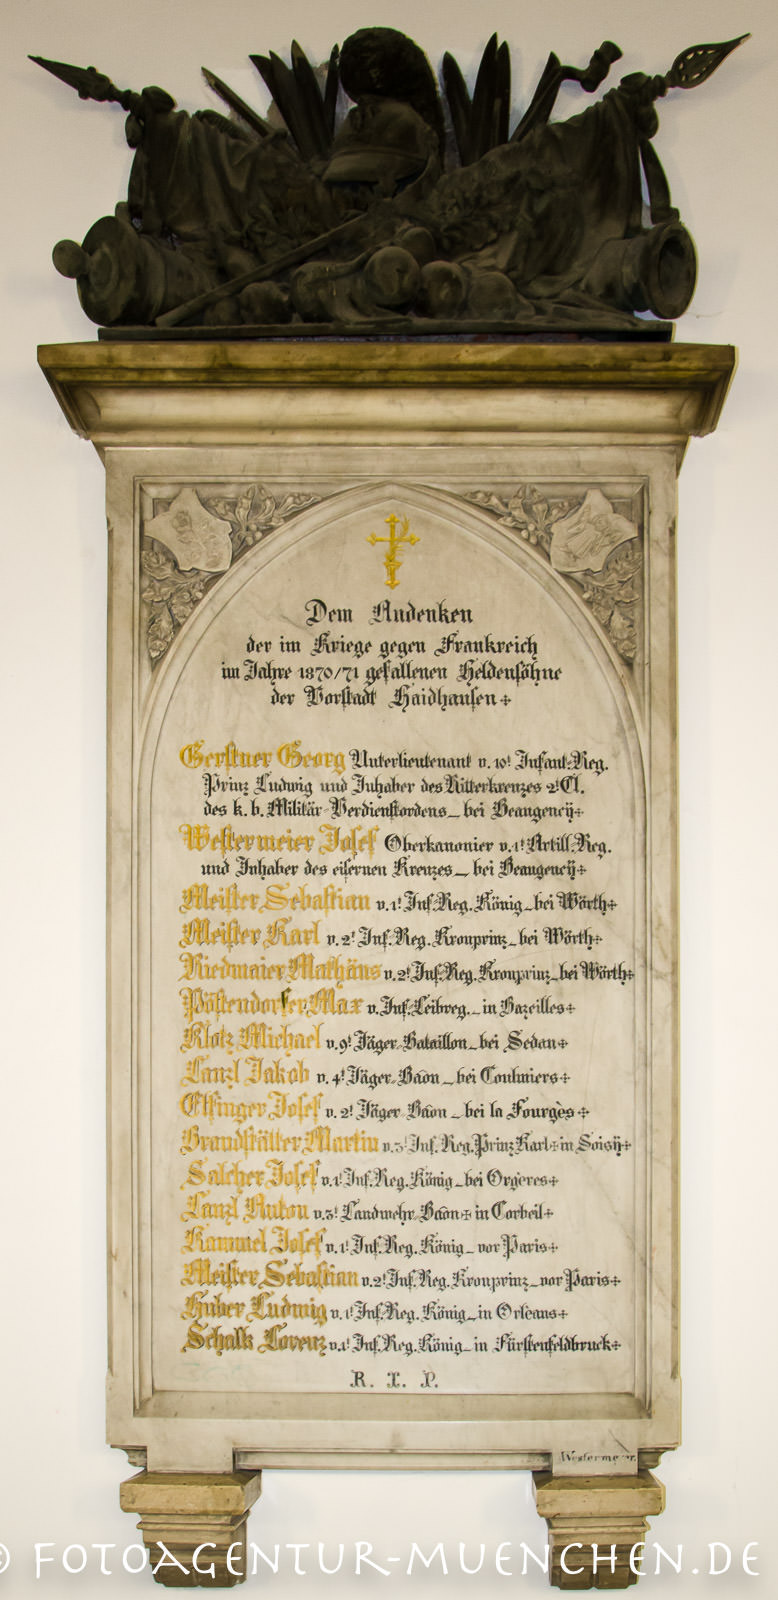 Dem Andenken
der im Kriege gegen Frankreich
im Jahre 1870/71 gefallenen Heldensöhne
der Vorstadt Haidhausen
Gerstner Georg Unterlieutenant v. 10t Infant. Reg.
Prinz Ludwig und Inhaber des Ritterkreuzes 2t Cl.
des k. b. Militär-Verdienstordens_ bei Beaugency
Westermeier Josef Oberkanonier v. 1t Artill. Reg.
und Inhaber des eisernen Kreuzes_ bei Beaugency
Meister Sebastian v. 1t Inf. Reg. König_ bei Wörth
Meister Karl v. 2t Inf. Reg. Kronprinz_ bei Wörth
Riedmaier Mathäus v. 2t Inf. Reg. Kronprinz_ bei Wörth
Pöstendorfer Max v. Inf. Leibreg._ in Bazeilles
Klotz Michael v. 9t Jäger-Bataillon_ bei Sedan
Lanzl Jakob v. 4t Jäger-Baon_ bei Coulmiers
Elfinger Josef v. 2t Jäger-Baon_ bei la Fourgès
Brandstätter Martin v. 3t Inf. Reg. Prinz Karl in Soisy
Salcher Josef v. 1t Inf. Reg. König_ bei Orgères
Lanzl Anton v. 3t Landwehr-Baon in Corbeil
Kammel Josef v. 1t Inf. Reg. König_ vor Paris
Meister Sebastian v. 2t Inf. Reg. Kronprinz_ vor Paris
Huber Ludwig v. 1t Inf. Reg. König_ in Orleans
Schalk Lorenz v. 1t Inf. Reg. König_ in Fürstenfeldbruck
R. I. P.
Westermeyer.
© FOTOAGENTUR-MUENCHEN.DE